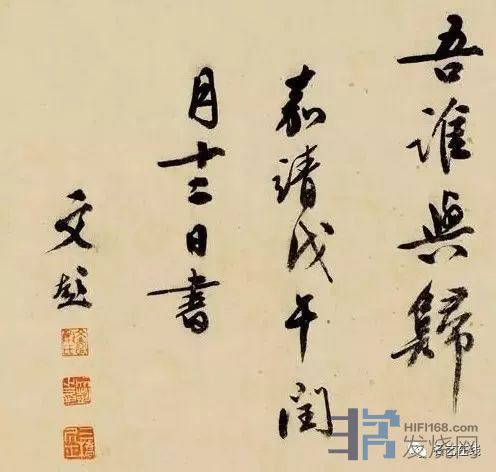 吾誰與歸
嘉靖戊午閏
月十二日書
文彭
HIFI168.com
发烧网